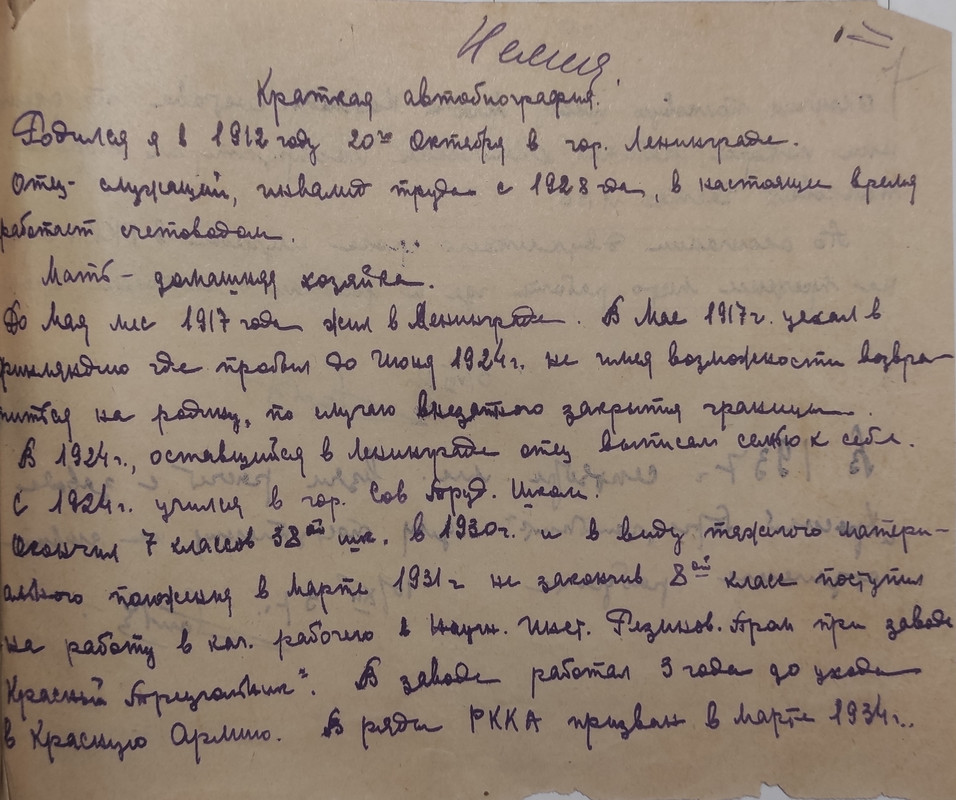 Краткая автобиография.
Родился я в 1912 году 20го Октября в гор. Ленинграде.
Отец - служащий, инвалид труда с 1928 года, в настоящее время
работает счетоводом.
Мать - домашняя хозяйка.
До Мая мес 1917 года жил в Ленинграде. В Мае 1917 г. уехал в
Финляндию где пробыл до Июня 1924 г. не имея возможности возвра-
титься на родину, по случаю внезапного закрытия границы.
В 1924 г., оставшийся в Ленинграде отец выписал семью к себе.
С 1924 г. учился в гор. Сов Труд. Школ.
Окончил 7 классов 38ой шк. в 1930 г. и в виду тяжелого матери-
ального положения в Марте 1931 г не закончив 8ой класс поступил
на работу в кач. рабочего в Научн. Инст. Резинов. Пром при заводе
Красный Треугольник". В заводе работал 3 года до ухода
в Красную Армию. В ряды РККА призван в марте 1934 г..